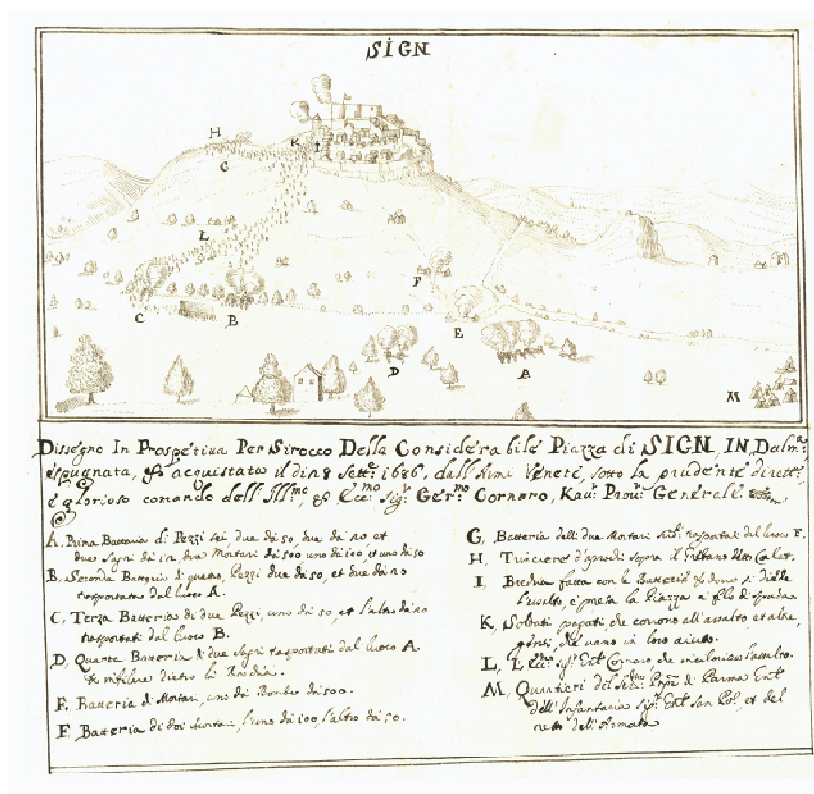 SIGN
H
K
I
G
L
F
C
B
E
D
A
M
Dissegno In Prospetiva Per Sirocco Della Considerabile Piazza di SIGN, IN Dalm.a
espugnata, et acquistata il di 28 Sett.e 1686, dall'Armi Venete, sotto la prudente dirett.e
è glorioso comando dell' Ill.mo, et Ecc.mo Sig.r Ger.mo Cornaro, Kau.r Prou.r Generale.
A, Prima Battaria di Pezzi sei, due da 50, due da 20 et
due Sagri da 12, due Mortari da 500 uno da 100, et uno da 50
B. Seconda Battaria di Pezzi due da 50, et due da 20
trasportata dal luoco A.
C, Terza Batteria di due Pezzi, uno da 50, et l'altro da 20
trasportati dal luoco B.
D, Quarta Batteria di due Sagri trasportati dal luoco A.
dietro la Breccia.
E. Batteria di Mortari, uno da Bombe da 500.
F. Batteria di doi Mortari, l'uno da 100, l'altro da 50.
G, Batteria dell due Mortari trasportati dal luoco F.
H, Trinciere d'aprochi sopra il
I, Breccia fatta con le Batterie, et dove si diede
l'assalto, e presa la Piazza a fil di spada.
K, Soldati pagati che corrono all'assalto, et altri
che vano in loro aiuto.
L, L'Ecc.mo Sig.r Cornaro che l'assalto.
M, Quartieri del Prpe di Parma
dell'Infantaria Sig.r San Pol, et del
resto dell'Armata